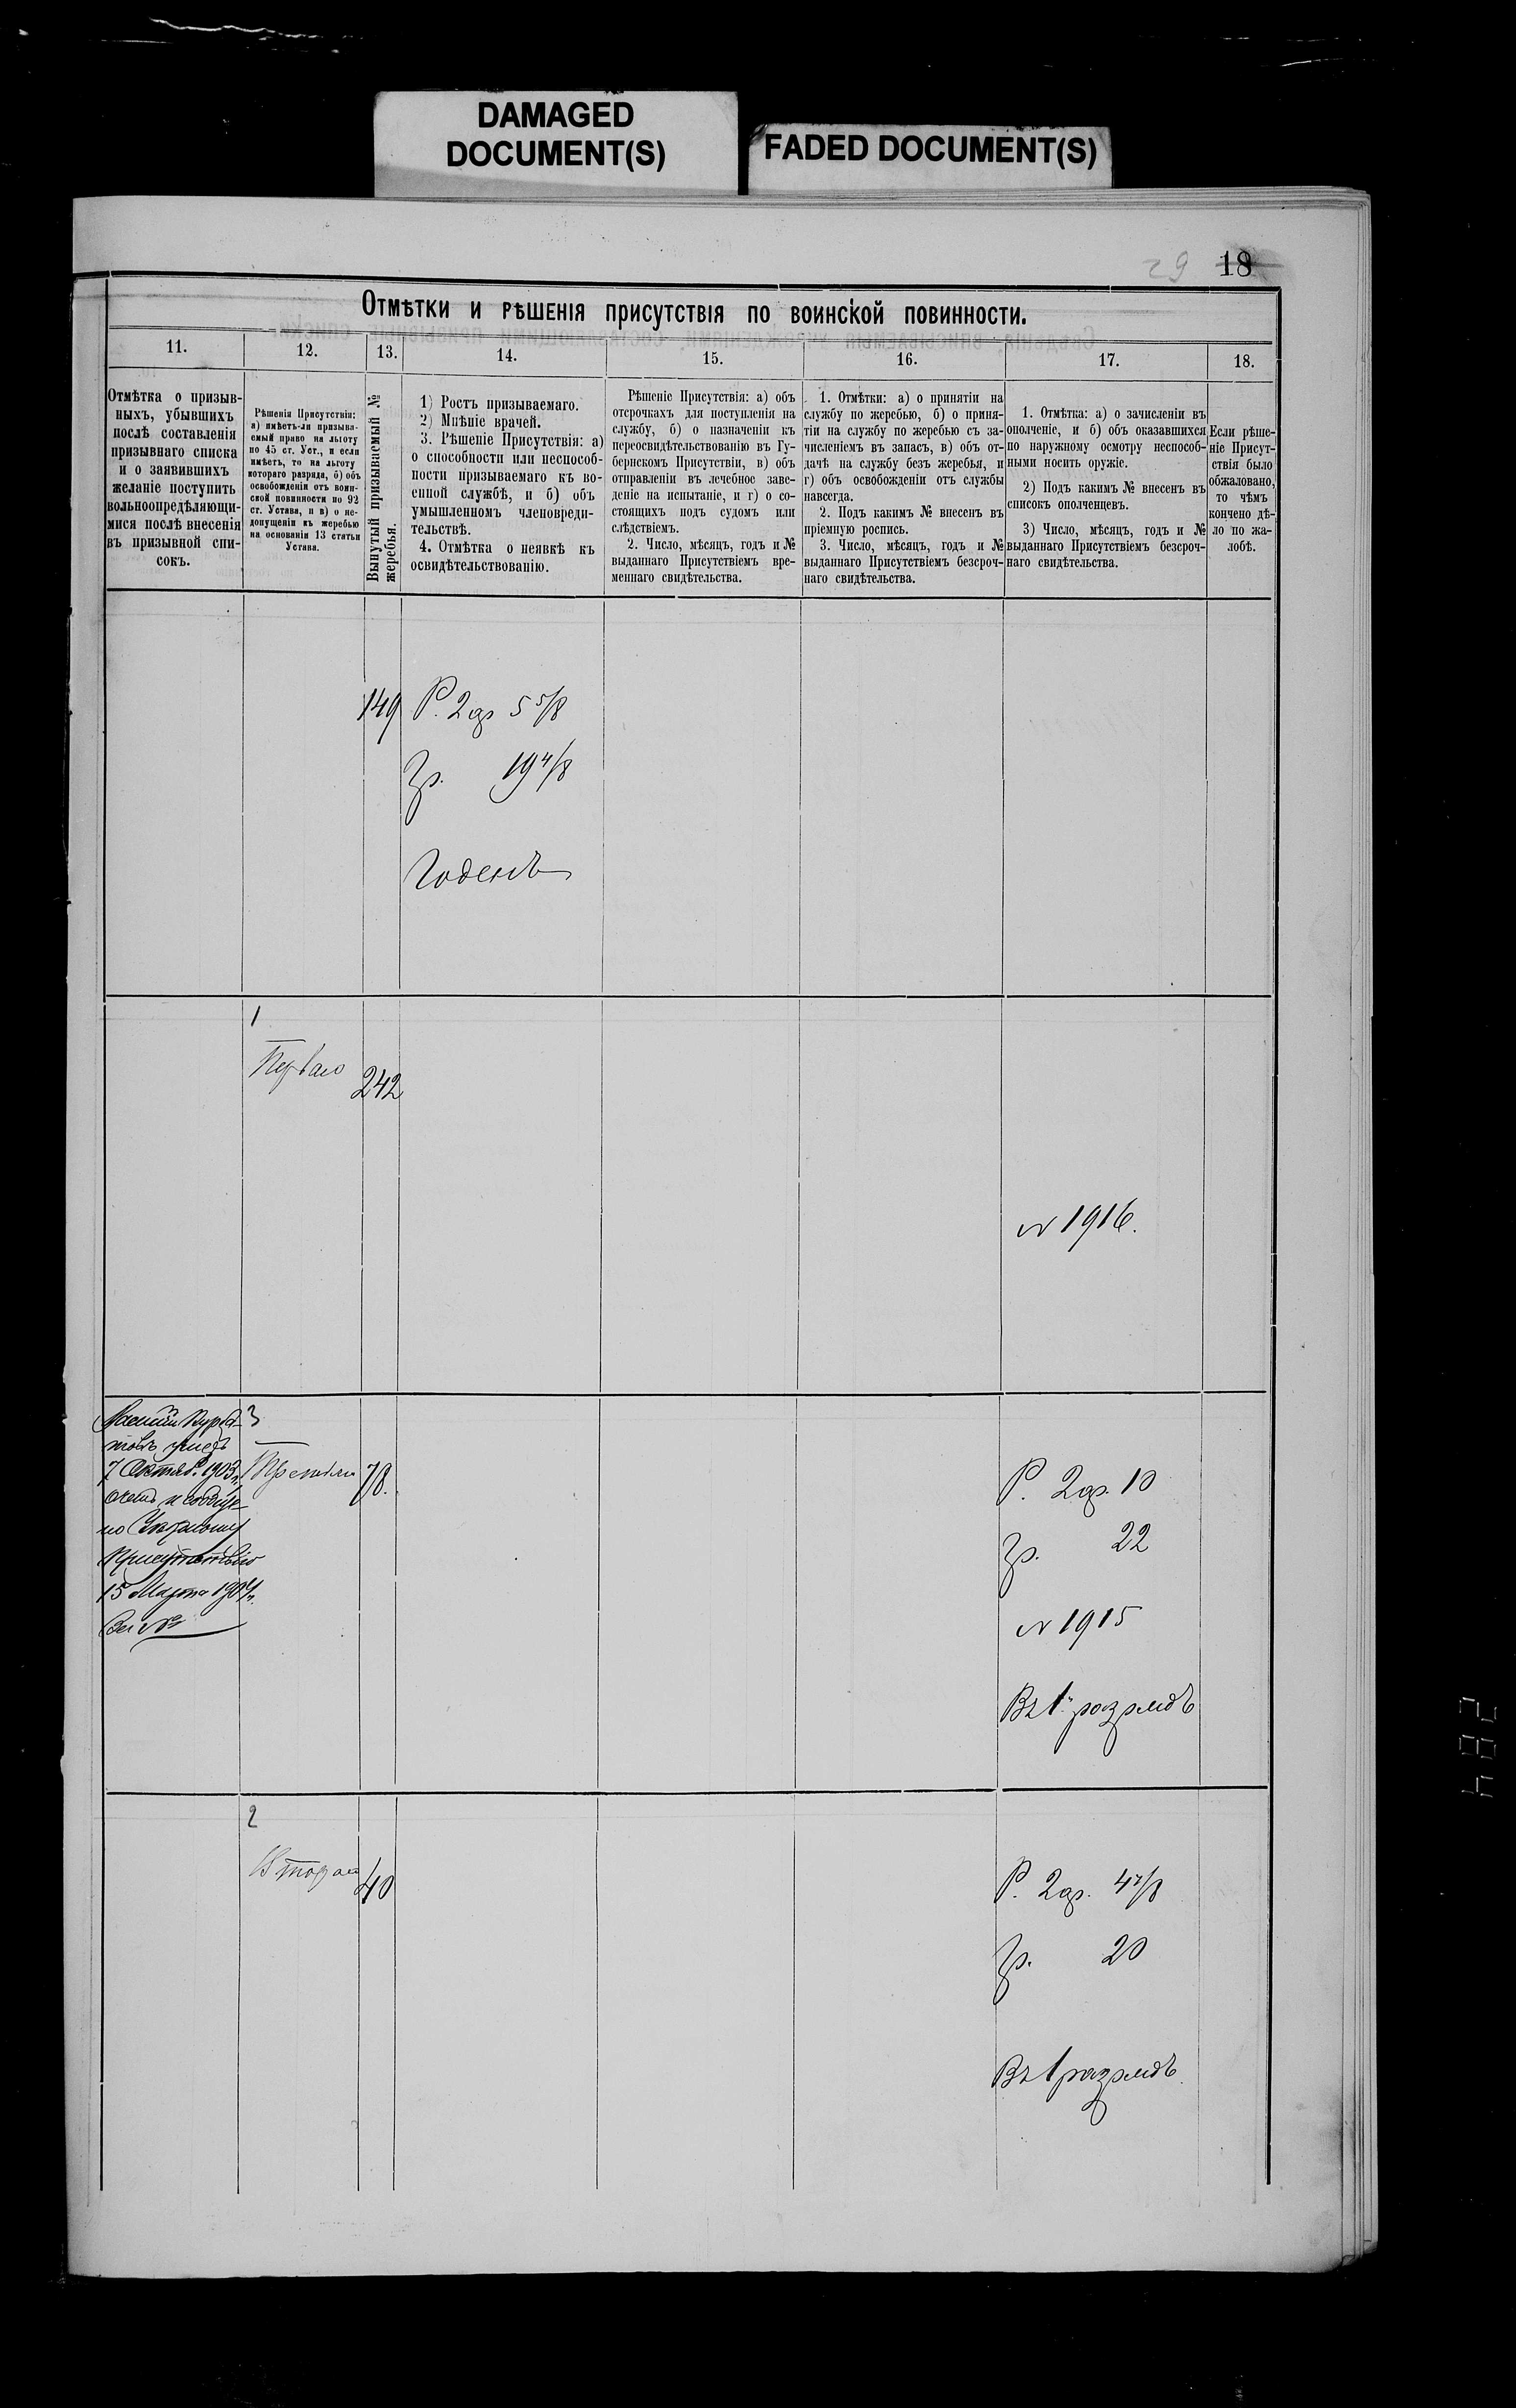 DAMAGED
DOCUMENT(S)
FADED DOCUMENT(S)
29 18
Отмѣтки и рѣшенія присутствія по воинской повинности.
11.
12.
13.
14.
15.
16.
17.
18.
Отмѣтка о призыв-
ныхъ, убывшихъ
послѣ составленія
призывнаго списка
и о заявившихъ
желаніе поступить
вольноопредѣляющи-
мися послѣ внесенія
въ призывной спи-
сокъ.
Рѣшенія Присутствія:
а) имѣетъ-ли призыва-
емый право на льготу
по 45 ст. Уст., и если
имѣетъ, то на льготу
котораго разряда, б) объ
освобожденіи отъ воин-
ской повинности по 92
ст. Устава, и в) о не-
допущеніи къ жеребью
на основаніи 13 статьи
Устава.
Вынутый призываемый №
жеребья.
1) Ростъ призываемаго.
2) Мнѣніе врачей.
3. Рѣшеніе Присутствія: а)
о способности или неспособ-
ности призываемаго къ во-
енной службѣ, и б) объ
умышленномъ членовреди-
тельствѣ.
4. Отмѣтка о неявкѣ къ
освидѣтельствованію.
Рѣшеніе Присутствія: а) объ
отсрочкахъ для поступленія на
службу, б) о назначеніи къ
переосвидѣтельствованію въ Гу-
бернскомъ Присутствіи, в) объ
отправленіи въ лечебное заве-
деніе на испытаніе, и г) о со-
стоящихъ подъ судомъ или
слѣдствіемъ.
2. Число, мѣсяцъ, годъ и №
выданнаго Присутствіемъ вре-
меннаго свидѣтельства.
1. Отмѣтки: а) о принятіи на
службу по жеребью, б) о приня-
тіи на службу по жеребью съ за-
численіемъ въ запасъ, в) объ от-
дачѣ на службу безъ жеребья, и
г) объ освобожденіи отъ службы
навсегда.
2. Подъ какимъ № внесенъ въ
пріемную роспись.
3. Число, мѣсяцъ, годъ и №
выданнаго Присутствіемъ безсроч-
наго свидѣтельства.
1. Отмѣтка: а) о зачисленіи въ
ополченіе, и б) объ оказавшихся
по наружному осмотру неспособ-
ными носить оружіе.
2) Подъ какимъ № внесенъ въ
списокъ ополченцевъ.
3) Число, мѣсяцъ, годъ и №
выданнаго Присутствіемъ безсроч-
наго свидѣтельства.
Если рѣше-
ніе Присут-
ствія было
обжаловано,
то чѣмъ
кончено дѣ-
ло по жа-
лобѣ.
149
Р. 2 ар 5 5/8
Гр. 19 4/8
Годенъ
1
Перваго
242
№ 1916.
умеръ
7 Октяб. 1903 г.
Присутствію
15 Марта 1904 г.
За №
3
Третьяго
78.
Р. 2 ар. 10
Гр. 22
№ 1915
Въ 1й разрядъ
2
Втораго
40
Р. 2 ар. 4 7/8
Гр. 20
Въ 1 разрядъ.
284